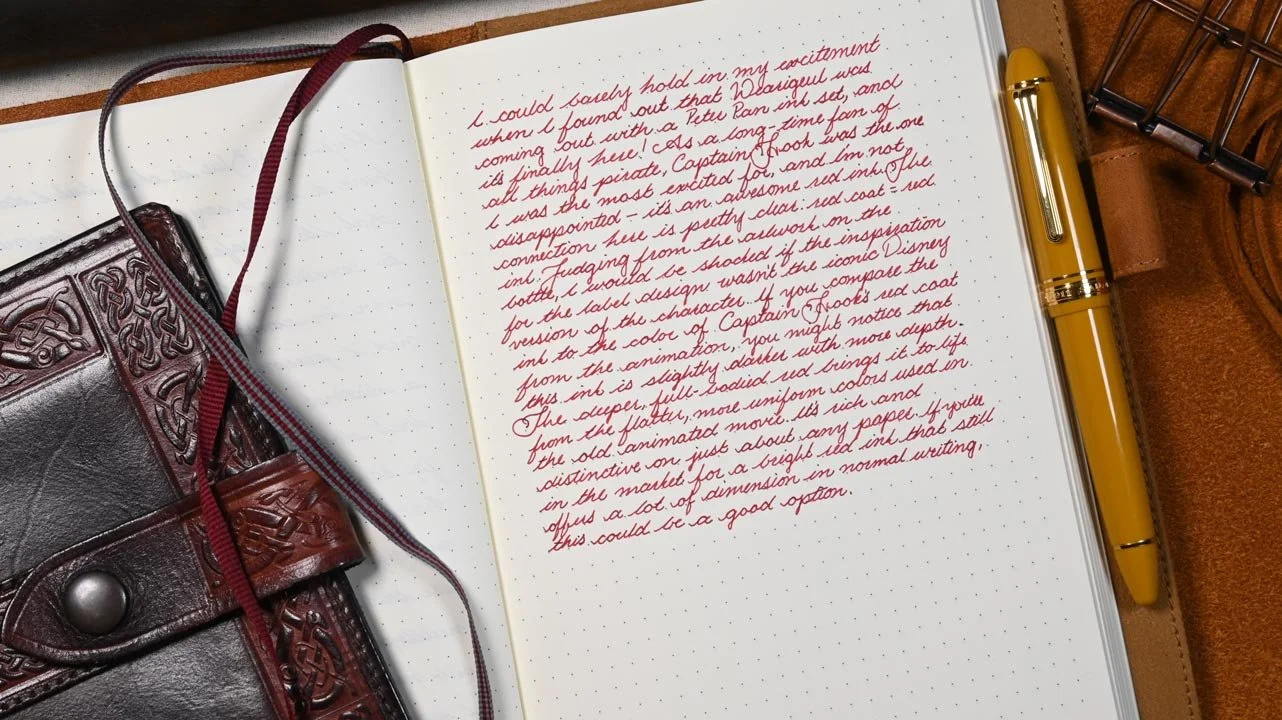 I could barely hold in my excitement
when I found out that Wearigeul was
coming out with a Peter Pan ink set, and
it's finally here! As a long-time fan of
all things pirate, Captain Hook was the one
I was the most excited for, and I'm not
disappointed – it's an awesome red ink. The
connection here is pretty clear: red coat = red
ink. Judging from the artwork on the
bottle, I would be shocked if the inspiration
for the label design wasn't the iconic Disney
version of the character. If you compare the
ink to the color of Captain Hook's red coat
from the animation, you might notice that
this ink is slightly darker with more depth.
The deeper, full-bodied red brings it to life
from the flatter, more uniform colors used in
the old animated movie. It's rich and
distinctive on just about any paper. If you're
in the market for a bright red ink that still
offers a lot of dimension in normal writing,
this could be a good option.